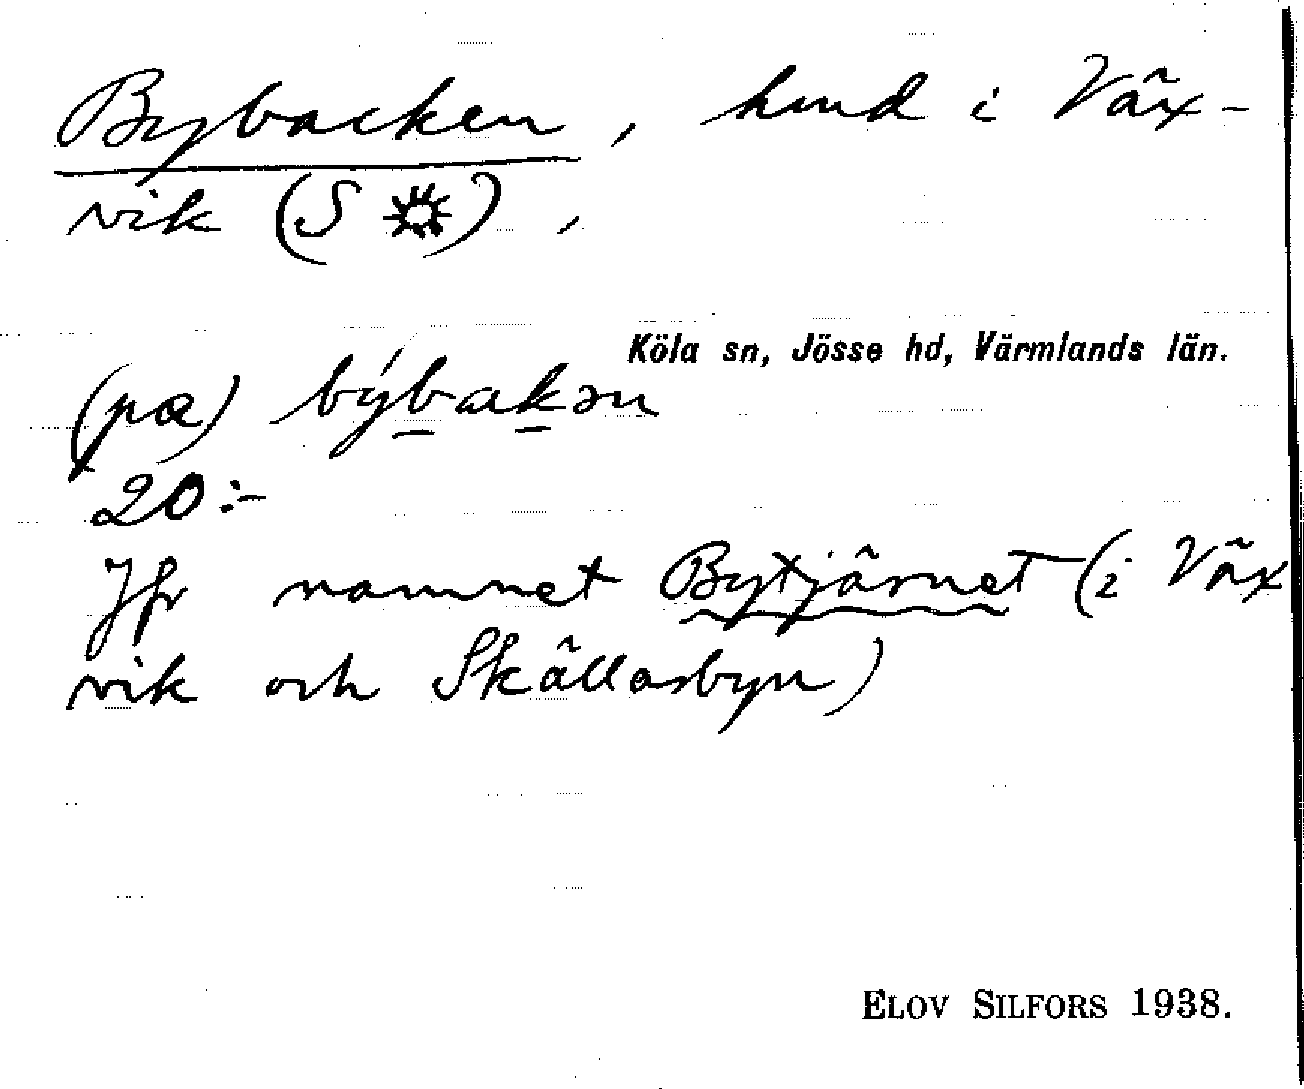 Bybacken, hmd i Väx-
vik (S ☼),
Köla sn, Jösse hd, Värmlands län.
(pα) býbakən
20:-
Jfr namnet Bytjärnet (i Väx
vik och Skällarbyn)
ELOV SILFORS 1938.